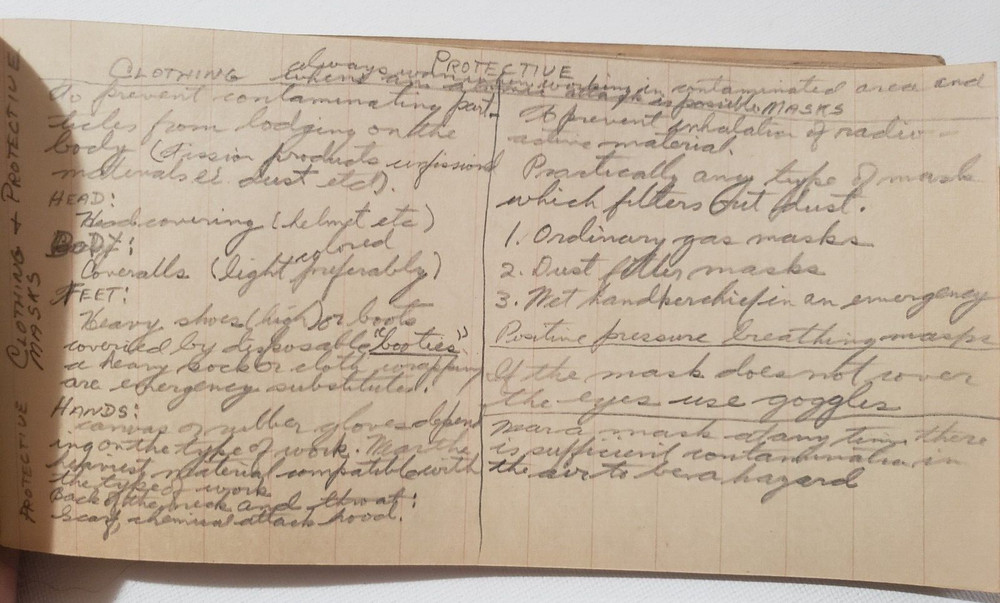 PROTECTIVE CLOTHING + MASKS
PROTECTIVE
CLOTHING always worn when working in contaminated area and
when is possible MASKS
To prevent contaminating part-
icles from lodging on the
body (Fission products unfissioned
materials ie. dust etc).
HEAD:
Head covering (helmet etc)
BODY:
Coveralls (light colored preferably)
FEET:
Heavy shoes (high) or boots
covered by disposable "booties".
a heavy sock or cloth wrapping
are emergency substitutes.
HANDS:
canvas or rubber gloves depend
ing on the type of work. Wear the
heaviest material compatible with
the type of work
Back of the neck and throat:
Scarf, chemical attack hood.
To prevent inhalation of radio-
active material.
Practically any type of mask
which filters out dust.
1. Ordinary gas masks
2. Dust filter masks
3. Wet handkerchief in an emergency
Positive pressure breathing masks
If the mask does not cover
the eyes use goggles
Wear a mask at any time there
is sufficient contamination in
the air to be a hazard